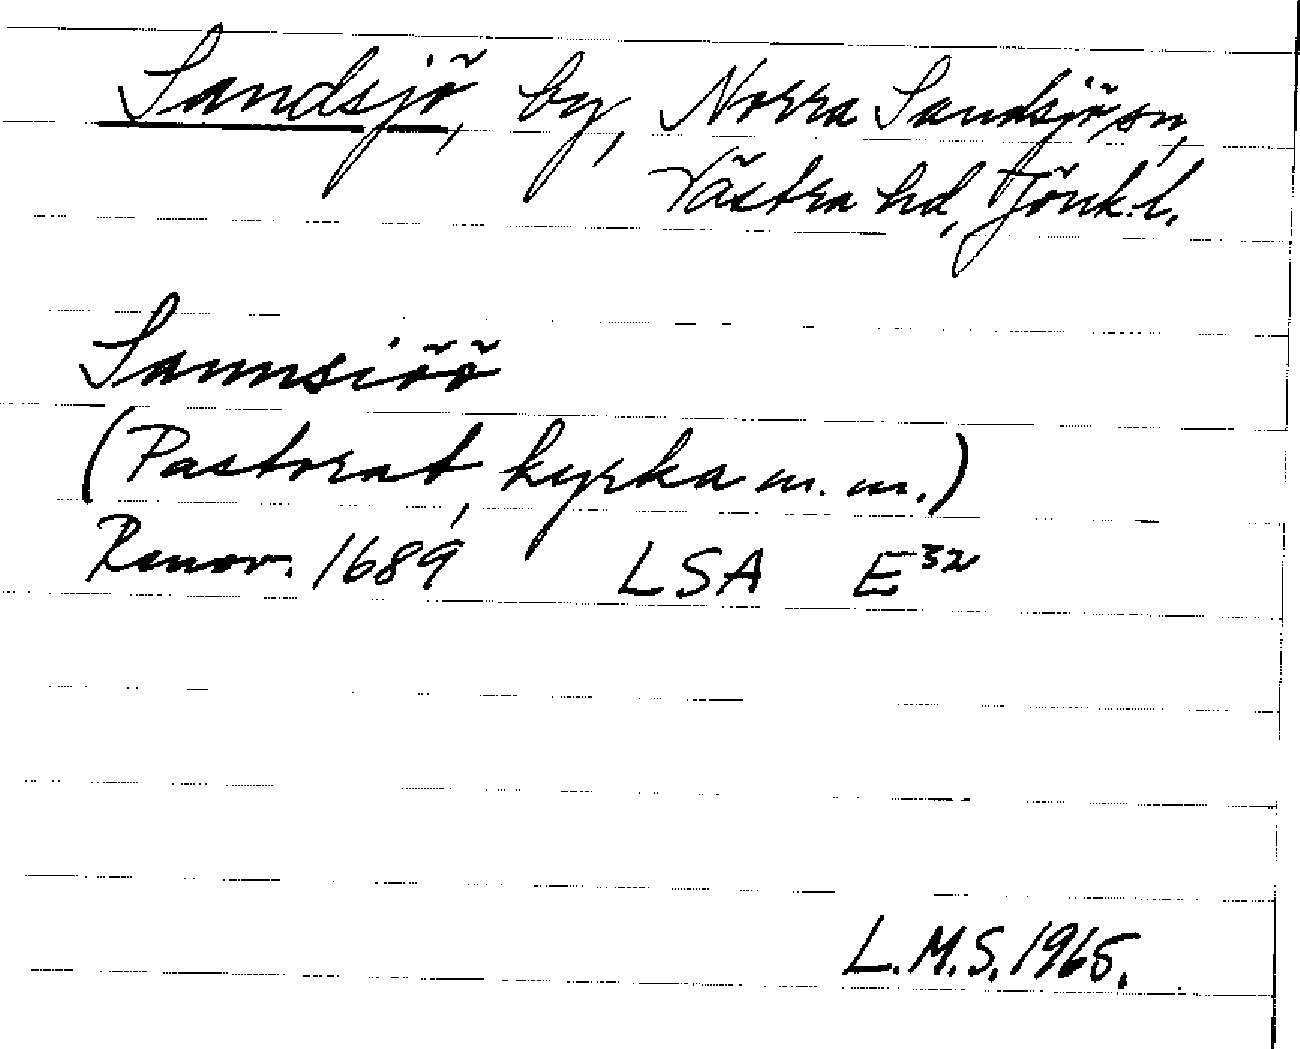 Sandsjö, by, Norra Sandsjö sn,
Västra hd, Jönk.l.
Sannsiöö
(Pastorat, kyrka m.m.)
Renov. 1689 LSA E32
L.M.S. 1965.